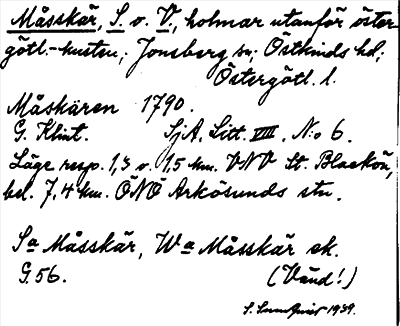 Måsskär, S. o. V., holmar utanför öster-
götl.-kusten; Jonsberg sn; Östkinds hd;
Östergötl. l.
Måskären 1790.
G. Klint. SjA. Litt. VIII. N:o 6.
Läge resp. 1,3 o. 1,5 km. VNV St. Blackön,
bel. 7,4 km. ÖNÖ Arkösunds stn.
Sa Måsskär, Wa Måsskär ek.
G. 56. (Vänd!)
1939.